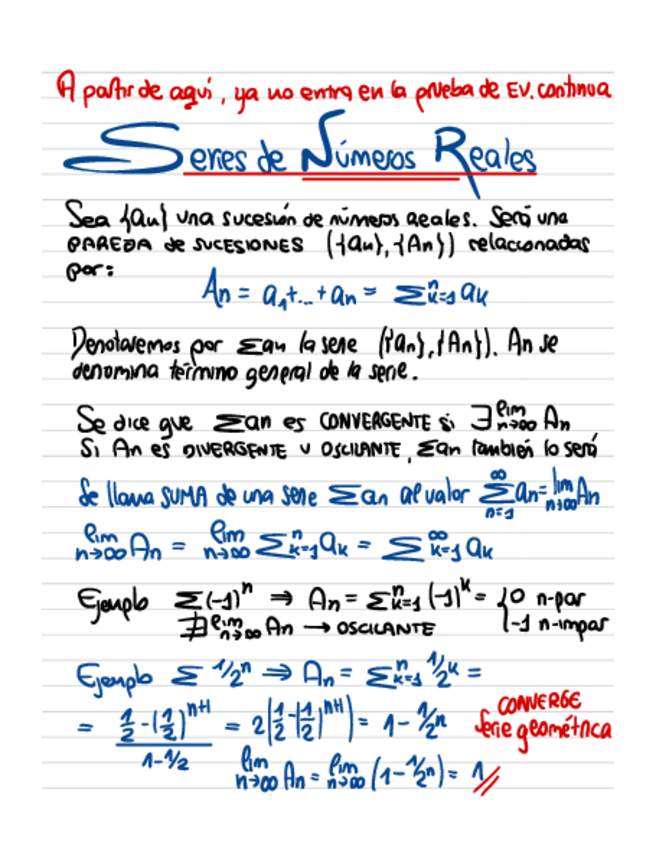 A partir de aquí, ya no entra en la prueba de EV. continua
Series de Números Reales
Sea {an} una sucesión de números reales. Será una
PAREJA de SUCESIONES ({an}, {An}) relacionadas
por:
An = a₁+...+an = Σⁿₖ₌₁ aₖ
Denotaremos por Σan la serie ({an}, {An}). An se
denomina término general de la serie.
Se dice que Σan es CONVERGENTE si ∃ lim n→∞ An
Si An es DIVERGENTE U OSCILANTE, Σan también lo será
Se llama SUMA de una serie Σan al valor Σ^∞ₙ₌₁ an = lim n→∞ An
lim n→∞ An = lim n→∞ Σⁿₖ₌₁ aₖ = Σ^∞ₖ₌₁ aₖ
Ejemplo Σ(-1)ⁿ ⇒ An = Σⁿₖ₌₁ (-1)ᵏ = {0 n-par
∄ lim n→∞ An → OSCILANTE -1 n-impar
Ejemplo Σ 1/2ⁿ ⇒ An = Σⁿₖ₌₁ 1/2ᵏ =
= (1/2 - (1/2)ⁿ⁺¹)/(1-1/2) = 2(1/2 - (1/2)ⁿ⁺¹) = 1 - 1/2ⁿ
CONVERGE
Serie geométrica
lim n→∞ An = lim n→∞ (1-1/2ⁿ) = 1